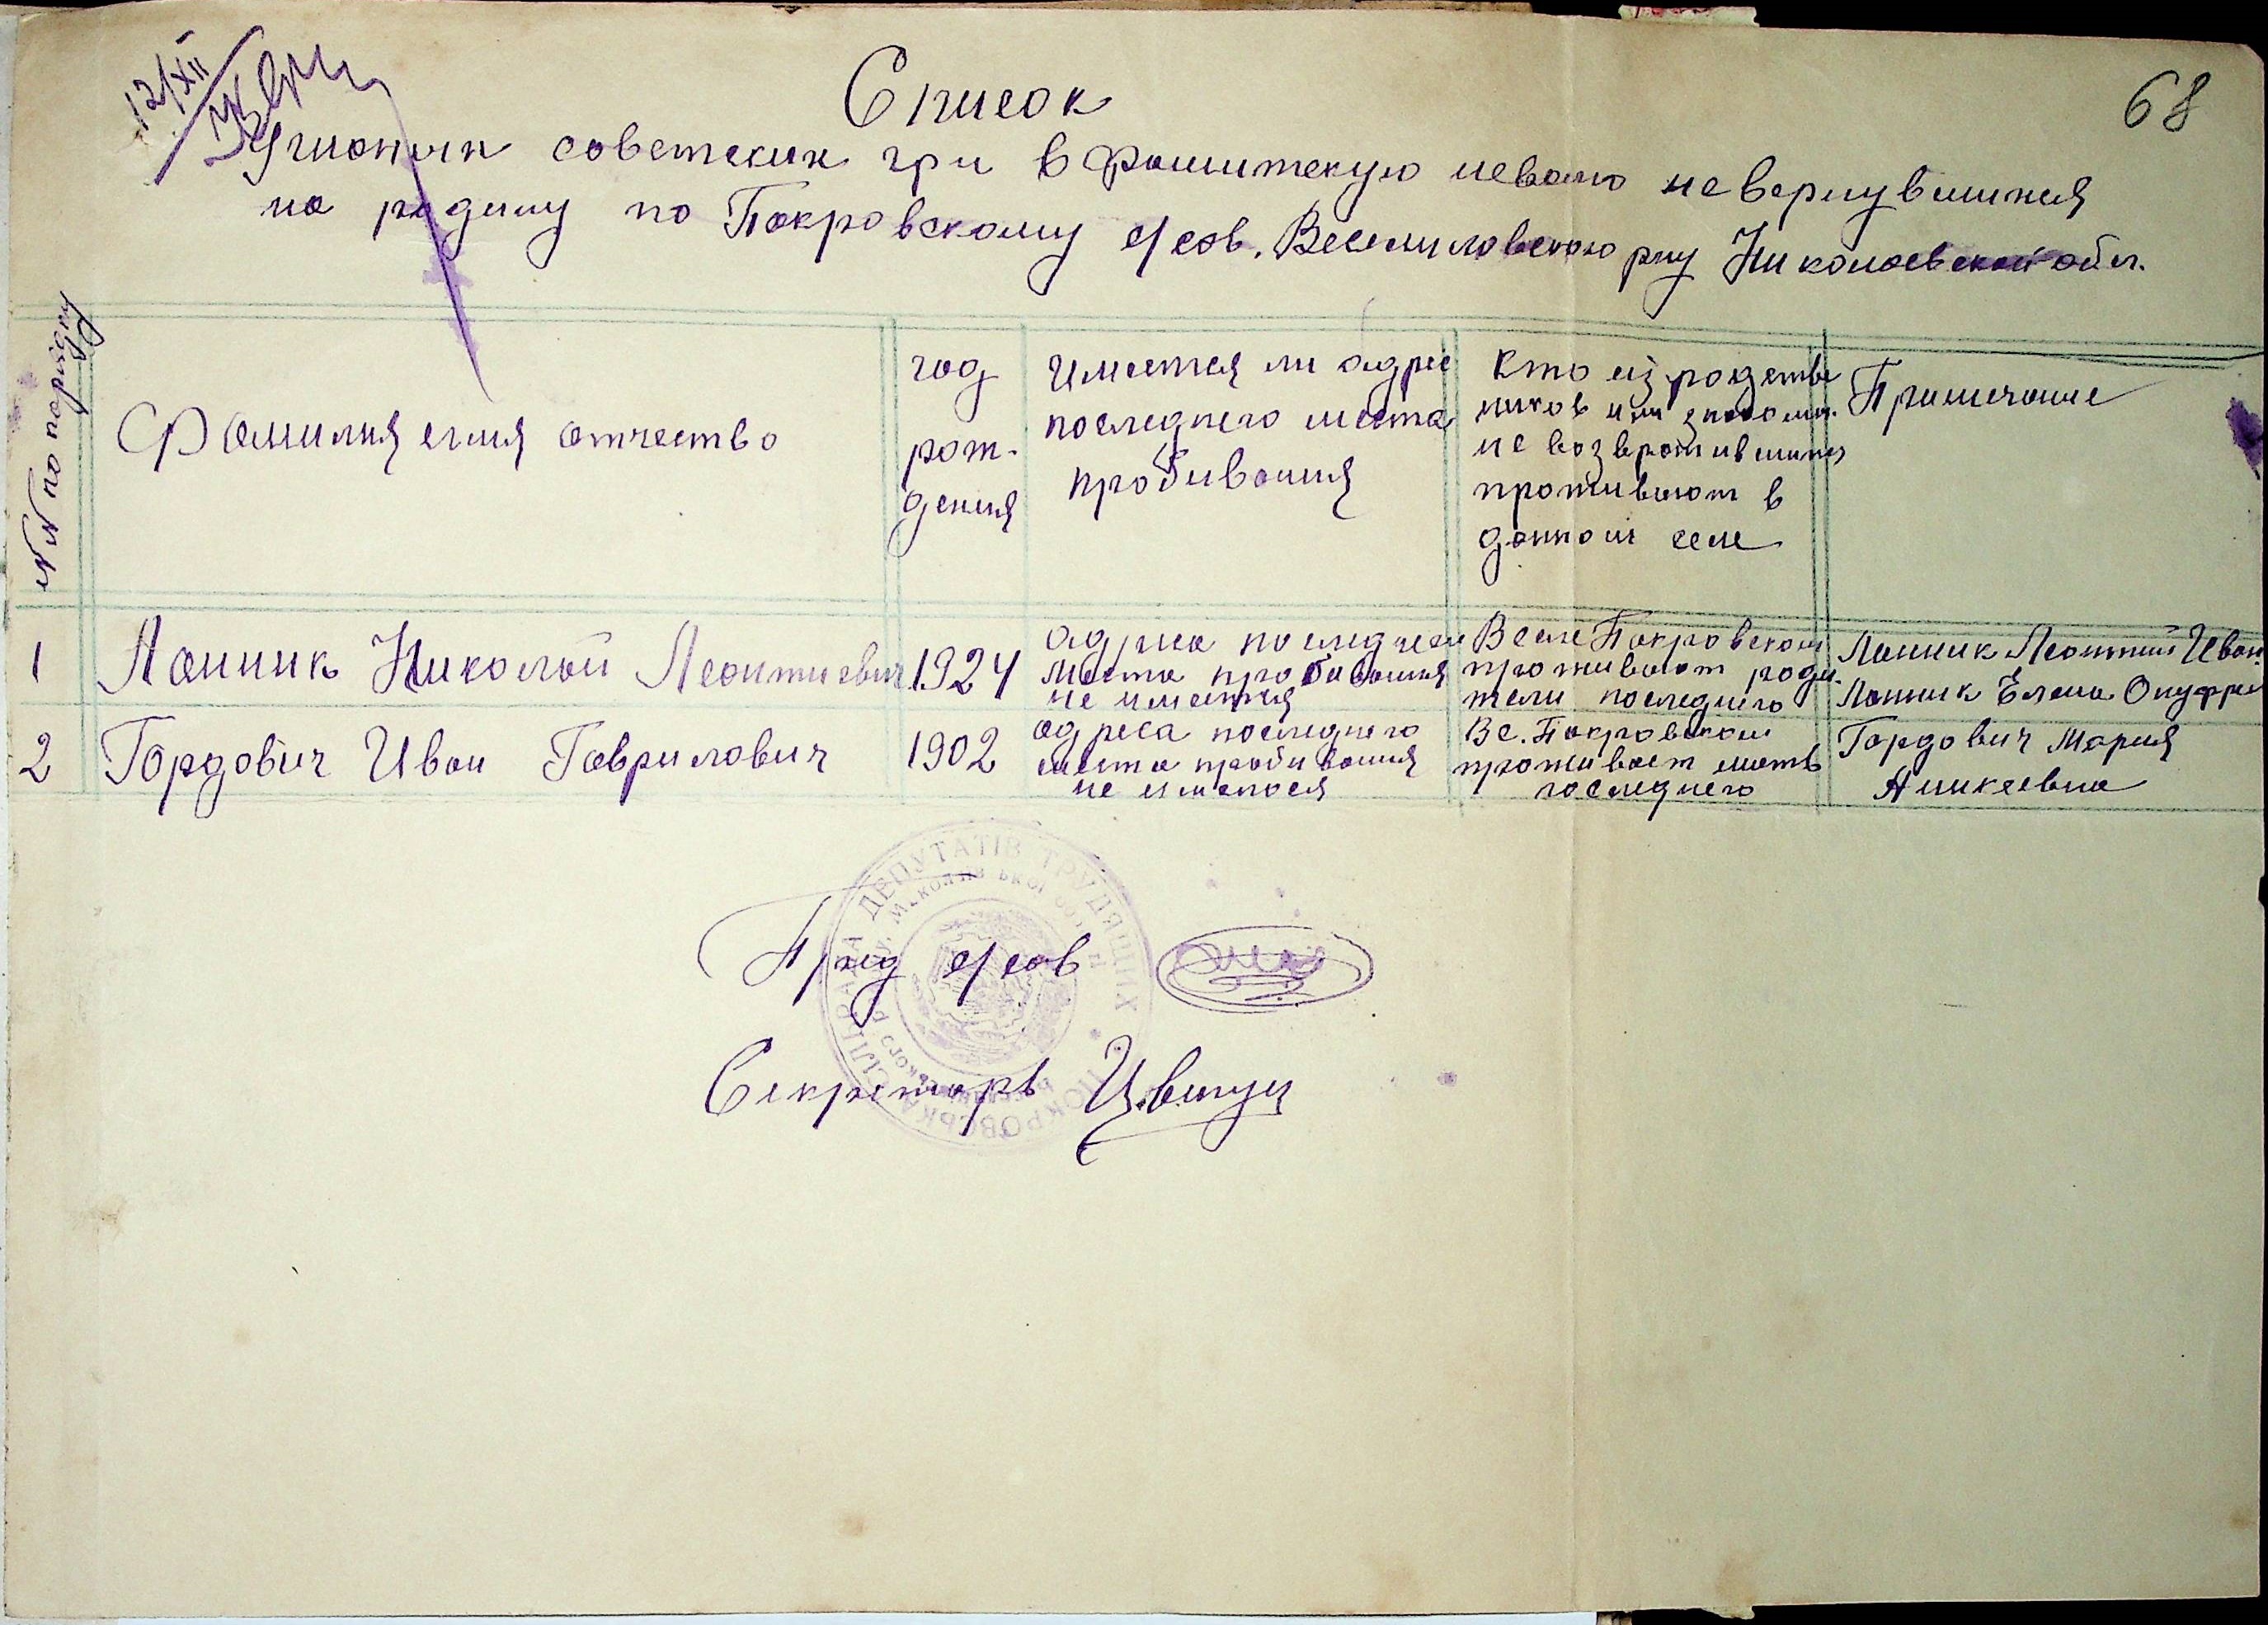 12/XII
68
Список
Угнаных советских гр-н в фашитскую неволю невернувшихся
на родину по Покровскому с/сов. Веселиновскою р-ну Николаевской обл.
№№ по порядку
Фамилия имя отчество
год
рож-
дения
Имеется ли адрес
последнего места
пробивания
Кто из родстве
ников или знакомы.
не возвратившихся
проживают в
данном селе
Примечание
1
Ланник Николай Леонтиевич
1924
адреса последнего
места пробивания
не имеется
В селе Покровском
проживают роди-
тели последнего
Ланник Леонтий Иван.
Ланник Елена Онуфри
2
Гордович Иван Гаврилович
1902
адреса последнего
места пробивания
не имелося
В с. Покровском
проживает мать
последнего
Гордович Мария
Аникеевна
ПОКРОВСЬКА СІЛЬРАДА ДЕПУТАТІВ ТРУДЯЩИХ
Пред с/сов
Секретарь